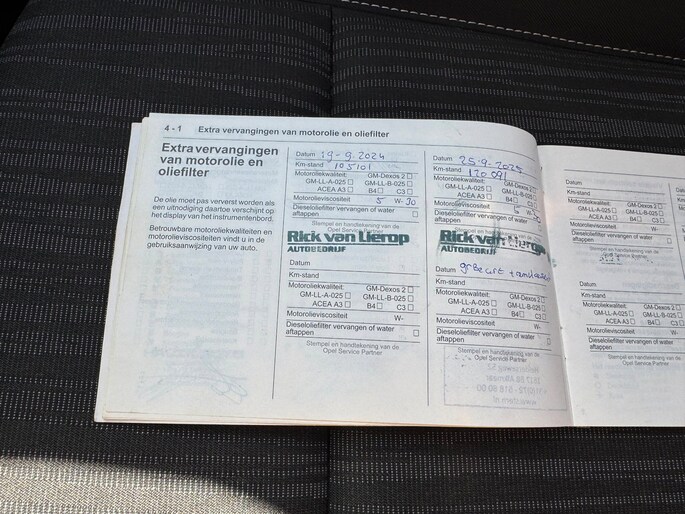 4 - 1 Extra vervangingen van motorolie en oliefilter
Extra vervangingen
van motorolie en
oliefilter
De olie moet pas ververst worden als
een uitnodiging daartoe verschijnt op
het display van het instrumentenbord.
Betrouwbare motoroliekwaliteiten en
motorolieviscositeiten vindt u in de
gebruiksaanwijzing van uw auto.
Datum 19-9.2024
Km-stand 105101
Motoroliekwaliteit: GM-Dexos 2
GM-LL-A-025 GM-LL-B-025
ACEA A3 B4 C3
Motorolieviscositeit 5 W- 30
Dieseloliefilter vervangen of water
aftappen
Stempel en handtekening van de
Opel Service Partner
Rick van Lierop
AUTOBEDRIJF
Datum
Km-stand
Motoroliekwaliteit: GM-Dexos 2
GM-LL-A-025 GM-LL-B-025
ACEA A3 B4 C3
Motorolieviscositeit W-
Dieseloliefilter vervangen of water
aftappen
Stempel en handtekening van de
Opel Service Partner
Datum 25-9-2025
Km-stand 120091
Motoroliekwaliteit: GM-Dexos 2
GM-LL-A-025 GM-LL-B-025
ACEA A3 B4 C3
Motorolieviscositeit W-
Dieseloliefilter vervangen of water
aftappen
Stempel en handtekening van de
Rick van Lierop
AUTOBEDRIJF
Datum gr Beurt +
Km-stand
Motoroliekwaliteit: GM-Dexos 2
GM-LL-A-025 GM-LL-B-025
ACEA A3 B4 C3
Motorolieviscositeit W-
Dieseloliefilter vervangen of water
aftappen
Stempel en handtekening van de
Opel Service Partner
Datum
Km-stand
Motoroliekwaliteit:
GM-LL-A-025
ACEA A3
Motorolieviscositeit
Dieseloliefilter vervangen
aftappen
Stempel en handtekening
Opel Service
Datum
Km-stand
Motoroliekwaliteit:
GM-LL-A-025
ACEA A3
Motorolieviscositeit
Dieseloliefilter vervangen
aftappen
Stempel en handtekening
Opel Service